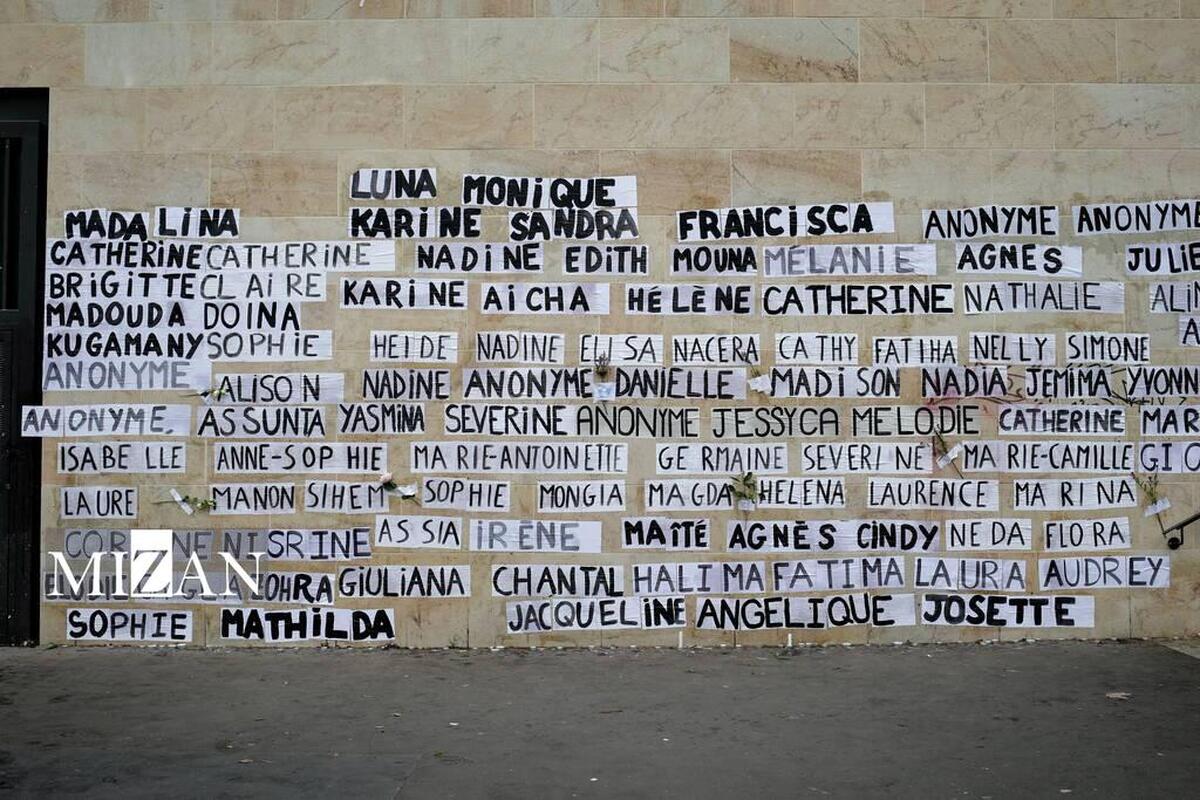 LUNA MONIQUE
MADA LINA KARINE SANDRA FRANCISCA ANONYME
CATHERINE CATHERINE NADINE EDITH MOUNA MÉLANIE AGNES JULIE
BRIGITTE CLAIRE KARINE AICHA HÉLÈNE CATHERINE NATHALIE
MADOUDA DOINA
KUGAMANY SOPHIE HEIDE NADINE ELISA NACERA CATHY FATIHA NELLY SIMONE
ANONYME ALISON NADINE ANONYME DANIELLE MADISON NADIA JEMIMA
ANONYME, ASSUNTA YASMINA SEVERINE ANONYME JESSYCA MELODIE CATHERINE
ISABELLE ANNE-SOPHIE MARIE-ANTOINETTE GERMAINE SEVERINE MARIE-CAMILLE
LAURE MANON SIHEM SOPHIE MONGIA MAGDA HELENA LAURENCE MARINA
NISRINE ASSIA IRÈNE MAÏTÉ AGNÈS CINDY NEDA FLORA
MIZAN
GIULIANA CHANTAL HALIMA FATIMA LAURA AUDREY
SOPHIE MATHILDA JACQUELINE ANGELIQUE JOSETTE